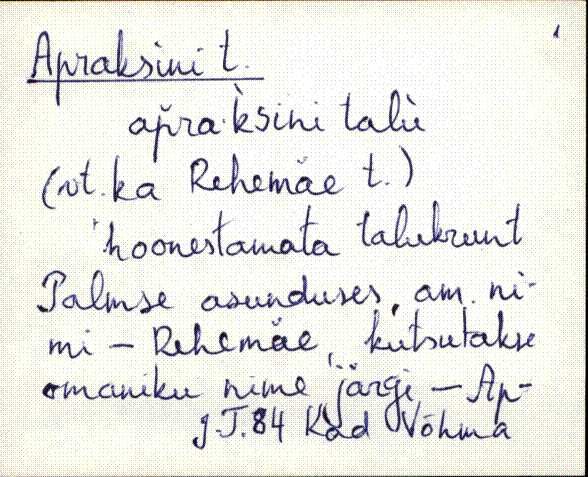 1
Apraksini t.
ap̆ra·k̀sini talù
(vt. ka Rehemäe t.)
hoonestamata talukrunt
Palmse asunduses, am. ni-
mi – Rehemäe, kutsutakse
omaniku nime järgi – Ap-
J.T. 84 Kad Võhma